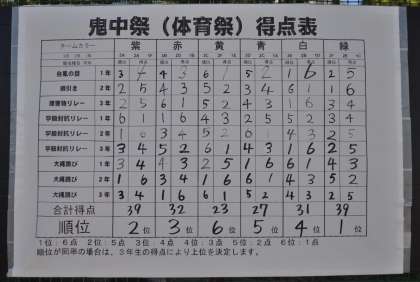 鬼中祭（体育祭）得点表
チームカラー 紫 赤 黄 青 白 緑
順位 得点 順位 得点 順位 得点 順位 得点 順位 得点 順位 得点
台風の目 1年 3 4 4 3 6 1 5 2 1 6 2 5
綱引き 2年 2 5 4 3 5 2 3 4 6 1 1 6
障害物リレー 3年 2 5 6 1 5 2 4 3 1 6 3 4
学級対抗リレー 1年 6 1 1 6 4 3 2 5 5 2 3 4
学級対抗リレー 2年 1 6 3 4 5 2 6 1 4 3 2 5
学級対抗リレー 3年 3 4 5 2 6 1 4 3 1 6 2 5
大縄跳び 1年 3 4 4 3 2 5 1 6 6 1 4 3
大縄跳び 2年 1 6 3 4 1 6 6 1 4 3 5 2
大縄跳び 3年 3 4 1 6 6 1 5 2 4 3 2 5
合計得点 39 32 23 27 31 39
順位 2位 3位 6位 5位 4位 1位
1位：6点 2位：5点 3位：4点 4位：3点 5位：2点 6位：1点
順位が同率の場合は、3年生の得点により上位を決定します。